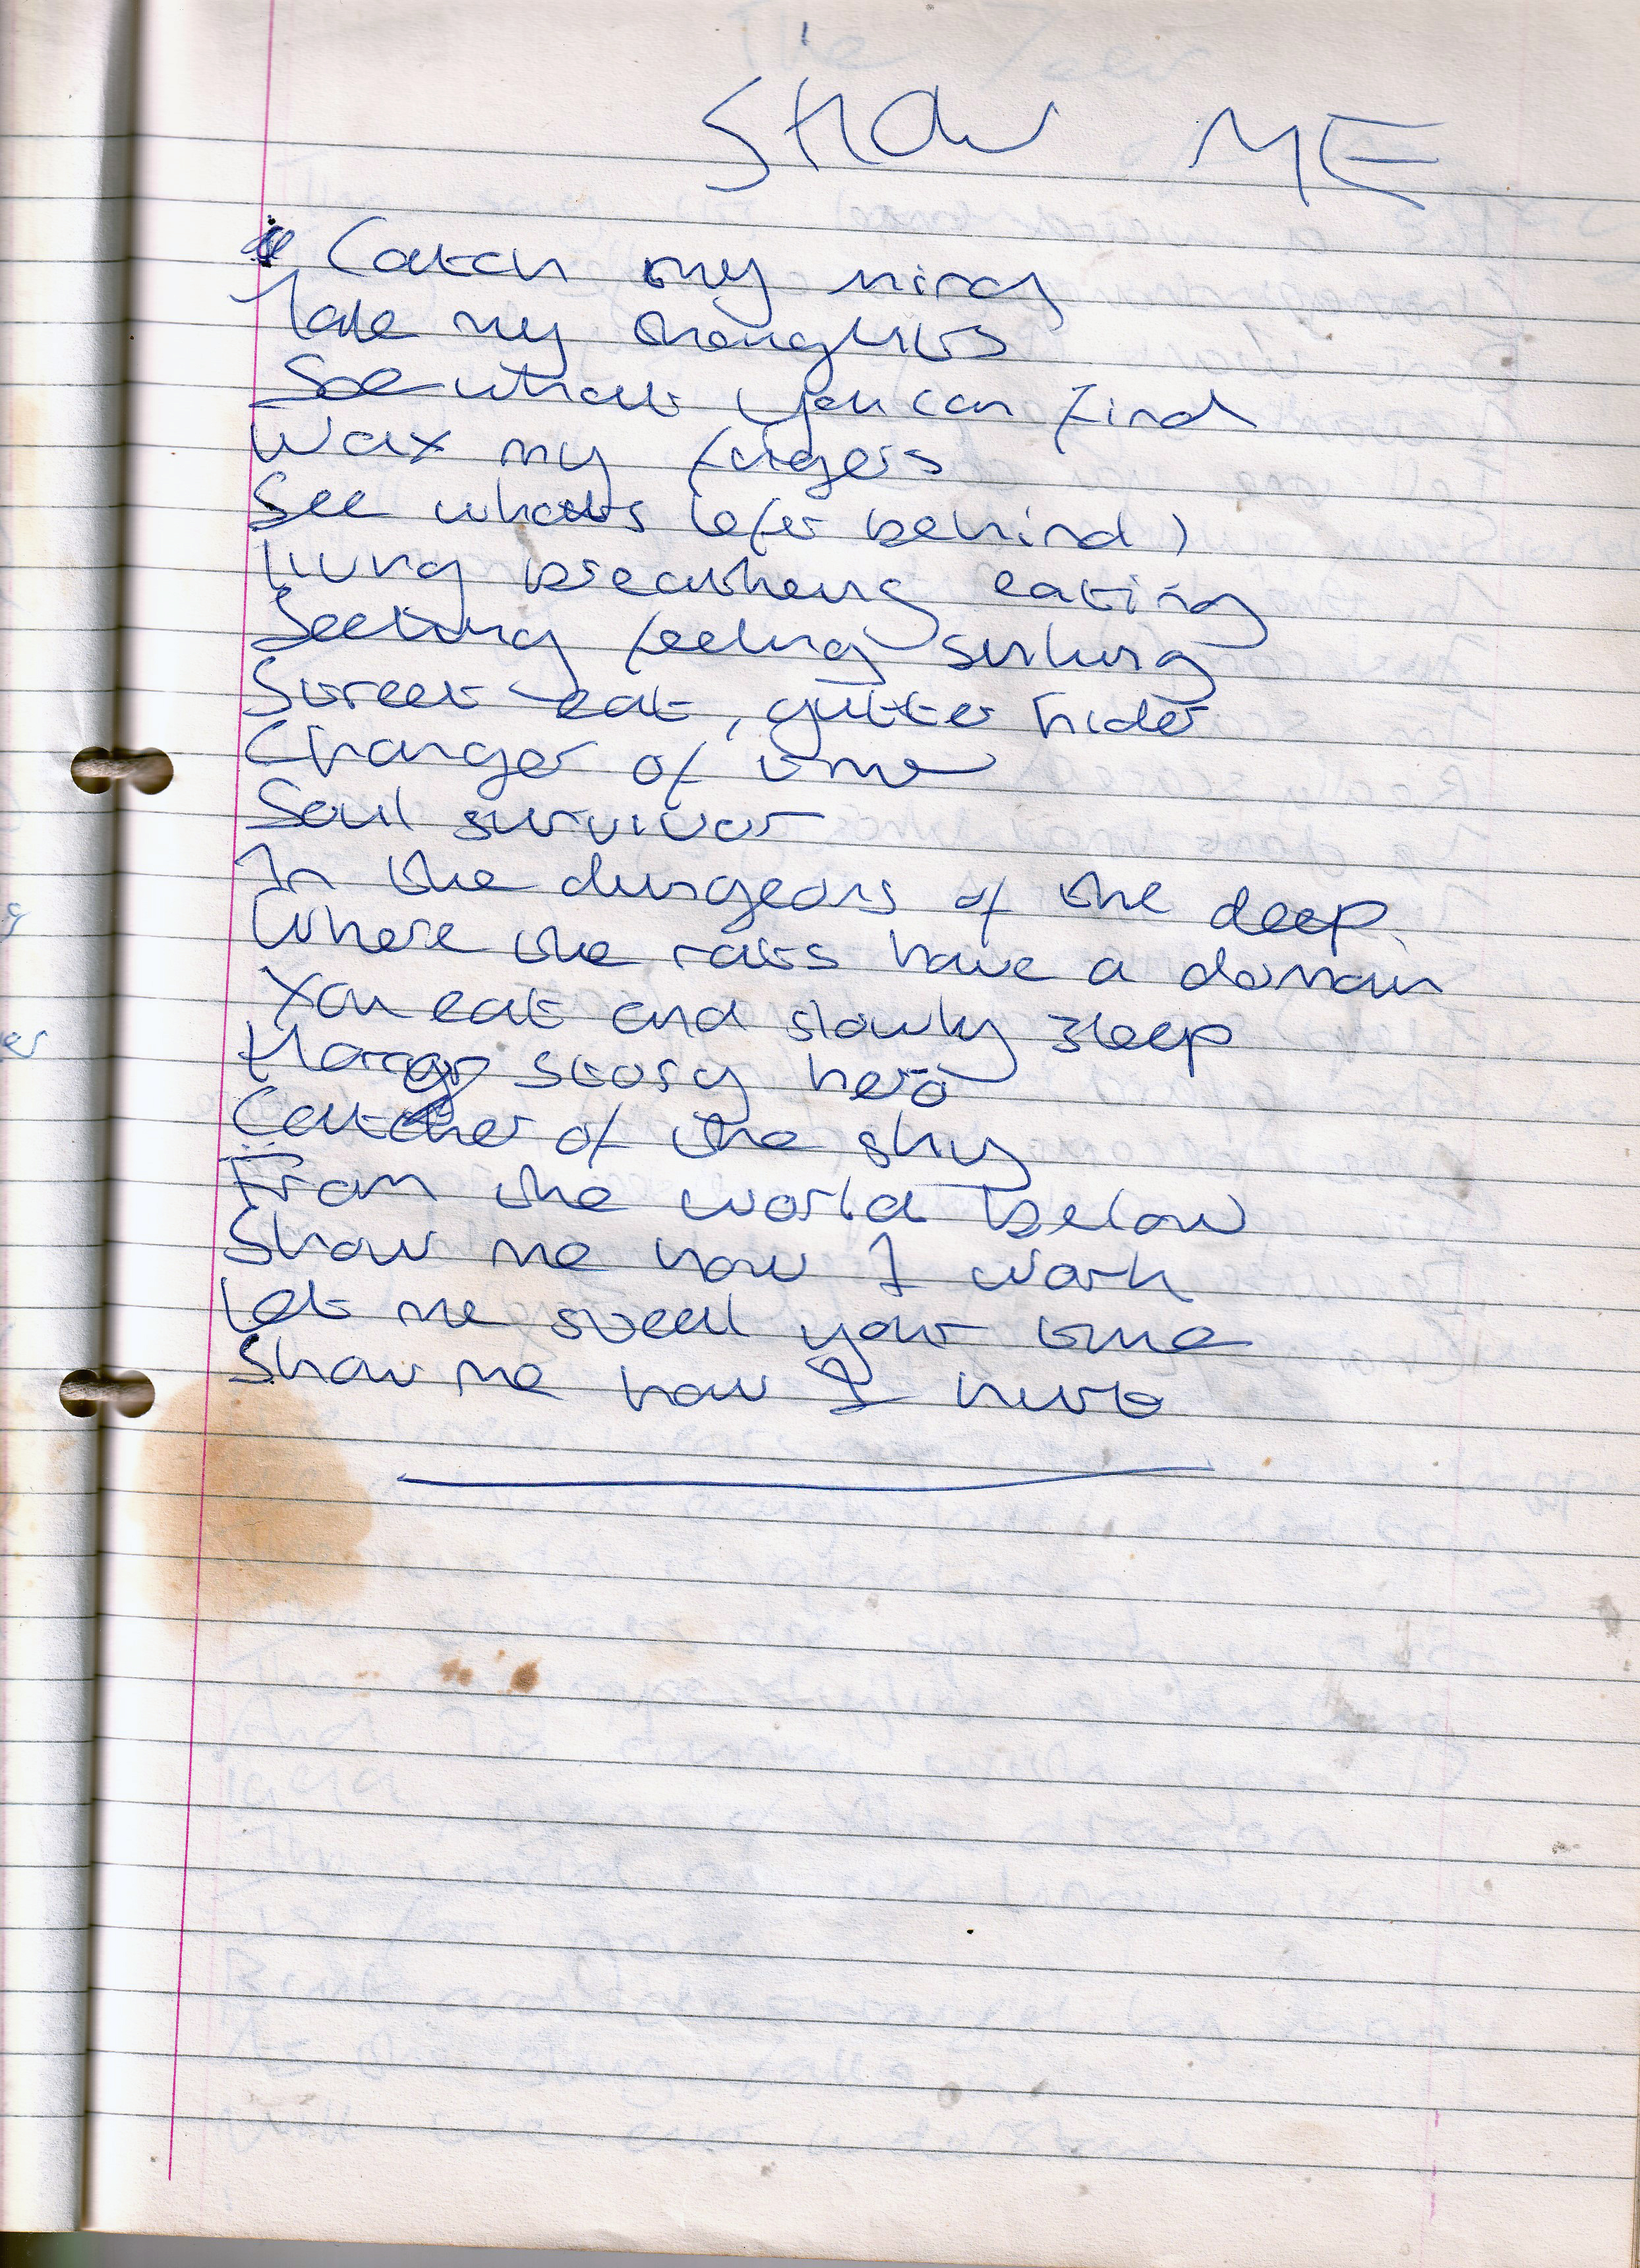 SHOW ME
Catch my mind
Take my thoughts
See what you can find
Wax my fingers
See what's left behind
Living breathing eating
Seeking feeling sinking
Street eat, gutter hider
Changer of time
Soul survivor
In the dungeons of the deep
Where the rats have a domain
You eat and slowly sleep
Horror story hero
Catcher of the sky
From the world below
Show me how I work
Let me steal your time
Show me how I hurt